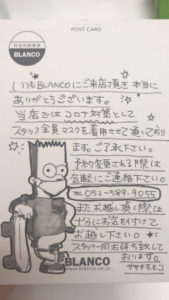 POST CARD
BLANCO
いつもBLANCOにご来店頂き 本当に
ありがとうございます。
当店ではコロナ対策として
スタッフ全員マスクを着用させて頂いており
ます。ご了承下さい。
予約変更される際は
気軽にご連絡下さい。
TEL 052-589-9055
またお越し頂く際は
ぜひお気を付けて
お越し下さい。
スタッフ一同お待ち致して
おります。
BLANCO
www.blanco.co.jp